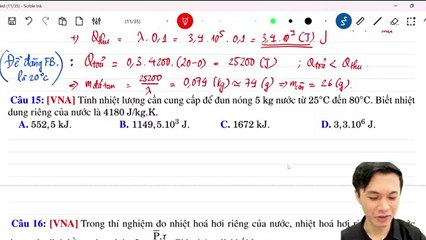 (11/35) - Sorbie Ink
(11/35)
⇒ Q thu = λ . 0,1 = 3,4 . 10⁵ . 0,1 = 3,4 . 10⁴ (J) J
(Đề đúng FB. là 20°C) Q toả = 0,3 . 4200 . (20-0) = 25200 (J) ; Q toả < Q thu
⇒ m đá tan = 25200/λ = 0,074 (kg) ≈ 74 (g) ⇒ m còn = 26 (g)
Câu 15: [VNA] Tính nhiệt lượng cần cung cấp để đun nóng 5 kg nước từ 25°C đến 80°C. Biết nhiệt
dung riêng của nước là 4180 J/kg.K.
A. 552,5 kJ. B. 1149,5.10³ J. C. 1672 kJ. D. 3,3.10⁶ J.
Câu 16: [VNA] Trong thí nghiệm đo nhiệt hoá hơi riêng của nước, nhiệt hoá hơi
P̅.τ